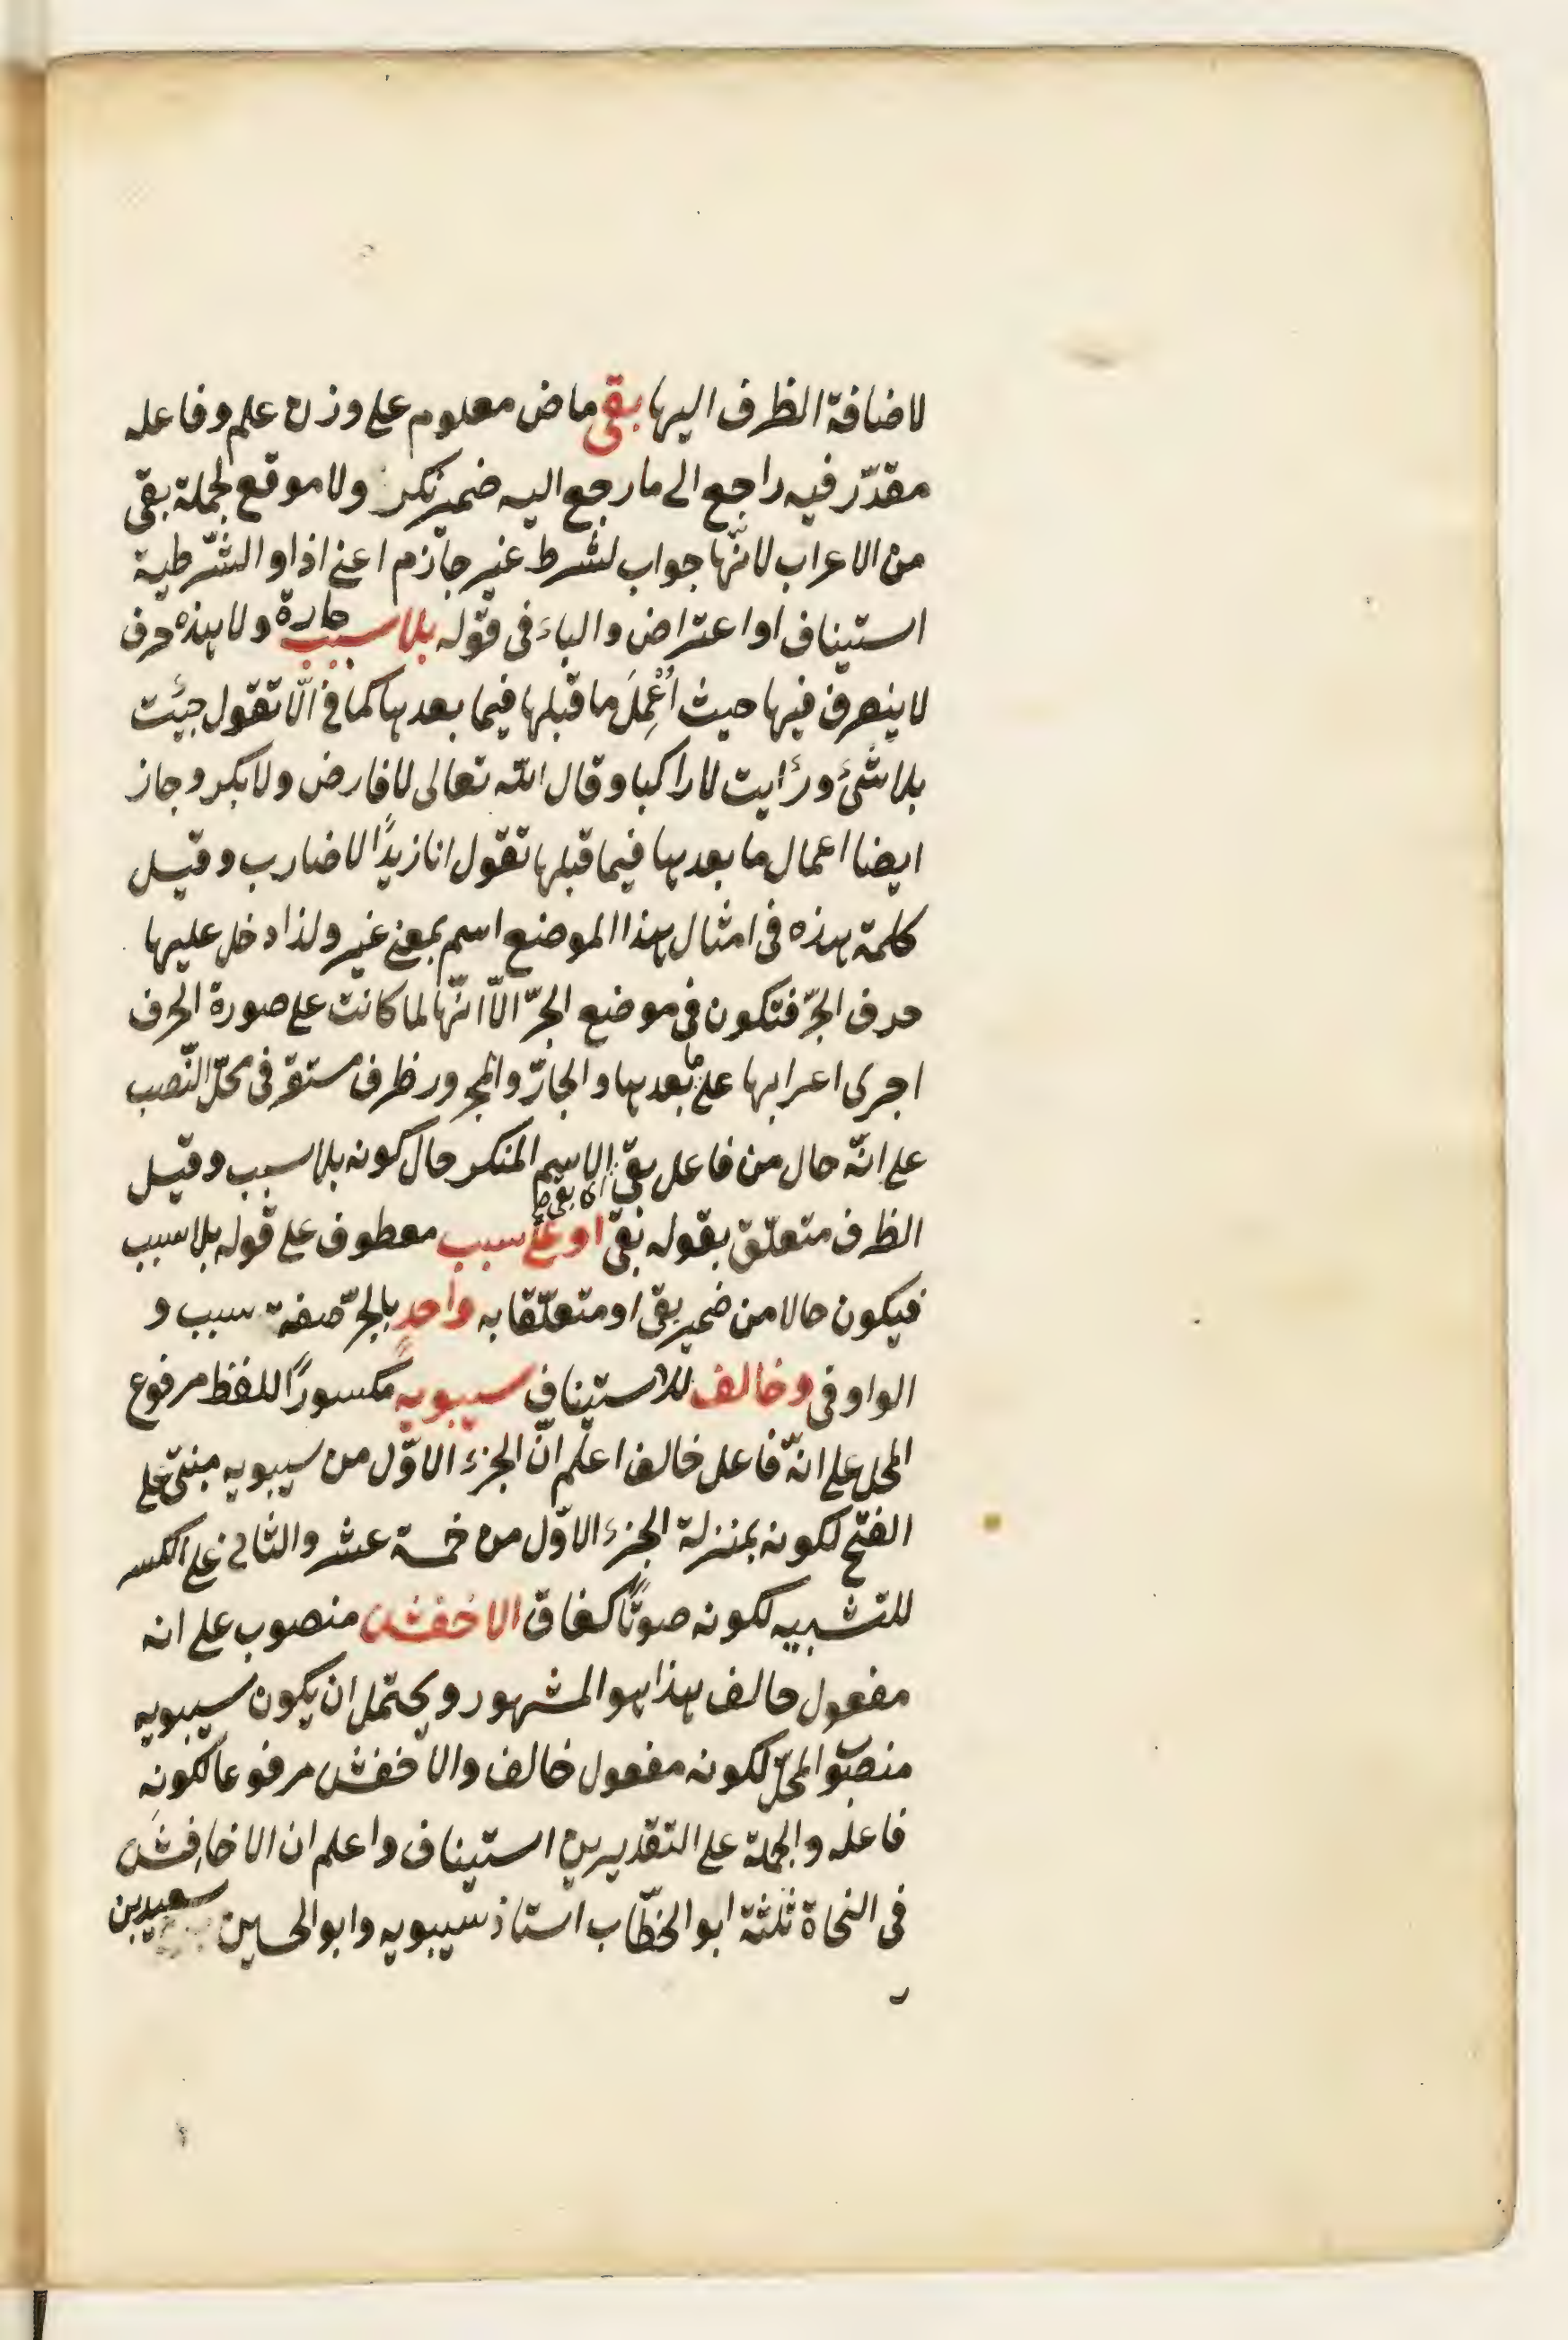 لاضافة الظرف اليها بقى ماض معلوم على وزن علم وفاعله
مقدّر فيه راجع الى ما رجع اليه ضمير نكر ولا موقع لجملة بقى
من الاعراب لانّها جواب لشرط غير جازم اعنى اذا او الشّرطية
استيناف او اعتراض والباء فى قوله بلا سبب جارة ولا هذه حرف
لا ينصرف فيها حيث اُعْمِلَ ما قبلها فيما بعدها كما فى الّا تقول جئت
بلا شئ ورأيت لا راكبا وقال الله تعالى لا فارض ولا بكر وجاز
ايضا اعمال ما بعدها فيما قبلها تقول انا زيدًا لا ضارب وقيل
كلمة هذه فى امثال هذا الموضع اسم بمعنى غير ولذا دخل عليها
حرف الجرّ فتكون فى موضع الجرّ الّا انّها لما كانت على صورة الحرف
اجرى اعرابها على ما بعدها والجارّ والمجرور ظرف مستقر فى محلّ النّصب
على انّه حال من فاعل بقى اى بقى الاسم المنكر حال كونه بلا سبب وقيل
الظرف متعلّق بقوله بقى او على سبب معطوف على قوله بلا سبب
فيكون حالا من ضمير بقى او متعلّقا به واحدٍ بالجرّ صفة سبب و
الواو فى وخالف للاستيناف سيبويهِ مكسورًا اللفظ مرفوع
المحل على انّه فاعل خالف اعلم انّ الجزء الاوّل من سيبويه مبنىّ على
الفتح لكونه بمنزلة الجزء الاوّل من خمسة عشر والثانى على الكسر
للتشبيه لكونه صوتًا كغاق الاخفش منصوب على انه
مفعول خالف هذا هو المشهور ويحتمل ان يكون سيبويه
منصوب المحلّ لكونه مفعول خالف والاخفش مرفوعا لكونه
فاعله والجملة على التقديرين استيناف واعلم ان الاخافش
فى النحاة ثلثة ابو الخطّاب استاذ سيبويه وابو الحسين سعيد بن